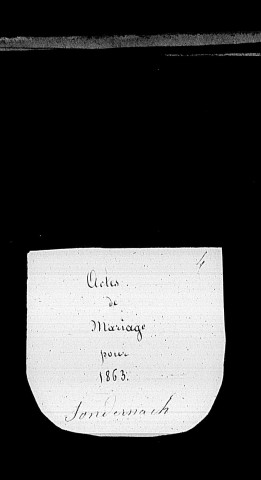 4
Actes
de
Mariage
pour
1863.
Sondernach